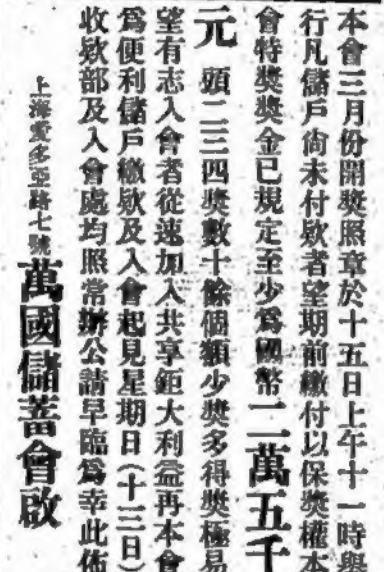 本會三月份開獎照章於十五日上午十一時舉
行凡儲戶尙未付欵者望期前繳付以保獎權本
會特獎獎金已規定至少爲國幣二萬五千
元頭二三四獎數十餘個額少獎多得獎極易
望有志入會者從速加入共享鉅大利益再本會
爲便利儲戶繳欵及入會起見星期日(十三日)
收欵部及入會處均照常辦公請早臨爲幸此佈
上海愛多亞路七號萬國儲蓄會啟